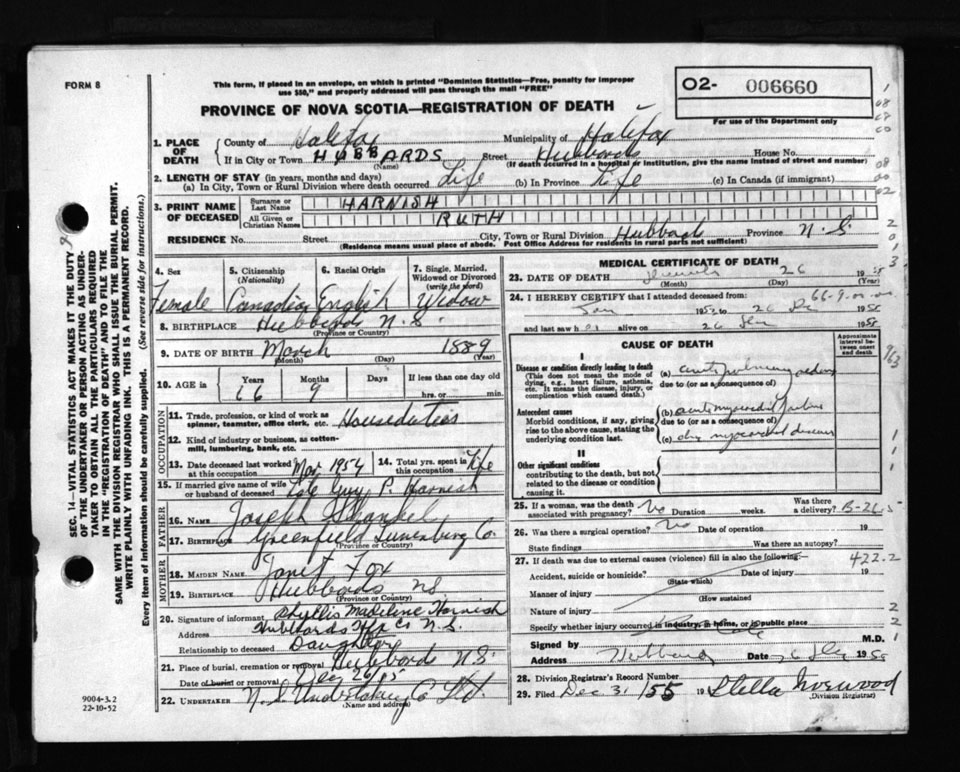 FORM 8
This form, if placed in an envelope, on which is printed "Dominion Statistics—Free, penalty for improper
use $50," and properly addressed will pass through the mail "FREE"
O2- 006660
For use of the Department only
PROVINCE OF NOVA SCOTIA—REGISTRATION OF DEATH
1. PLACE OF DEATH
County of Halifax Municipality of Halifax
If in City or Town HUBBARDS Street Hubbards House No.
(Name) (If death occurred in a hospital or institution, give the name instead of street and number)
2. LENGTH OF STAY (in years, months and days)
(a) In City, Town or Rural Division where death occurred Life (b) In Province Life (c) In Canada (if immigrant)
3. PRINT NAME OF DECEASED
Surname or Last Name HARNISH
All Given or Christian Names RUTH
RESIDENCE No. Street City, Town or Rural Division Hubbards Province N.S.
(Residence means usual place of abode. Post Office Address for residents in rural parts not sufficient)
SEC. 14—VITAL STATISTICS ACT MAKES IT THE DUTY
OF THE UNDERTAKER OR PERSON ACTING AS UNDER-
TAKER TO OBTAIN ALL THE PARTICULARS REQUIRED
IN THE "REGISTRATION OF DEATH" AND TO FILE THE
SAME WITH THE DIVISION REGISTRAR WHO SHALL ISSUE THE BURIAL PERMIT.
WRITE PLAINLY WITH UNFADING INK. THIS IS A PERMANENT RECORD.
Every item of information should be carefully supplied. (See reverse side for instructions.)
4. Sex Female
5. Citizenship (Nationality) Canadian
6. Racial Origin English
7. Single, Married, Widowed or Divorced (write the word) Widow
8. BIRTHPLACE Hubbards N.S.
(Province or Country)
9. DATE OF BIRTH March 1889
(Month) (Day) (Year)
10. AGE in Years Months Days If less than one day old
66 9 hrs. or min.
OCCUPATION
11. Trade, profession, or kind of work as spinner, teamster, office clerk, etc. Houseduties
12. Kind of industry or business, as cotton-mill, lumbering, bank, etc.
13. Date deceased last worked at this occupation Mar 1954
14. Total yrs. spent in this occupation Life
15. If married give name of wife or husband of deceased Late Guy P. Harnish
FATHER
16. NAME Joseph
17. BIRTHPLACE Greenfield Lunenberg Co.
(Province or Country)
MOTHER
18. MAIDEN NAME Janet Fox
19. BIRTHPLACE Hubbards NS
(Province or Country)
20. Signature of informant Phyllis Madeline Harnish
Address Hubbards Hfx Co N.S.
Relationship to deceased Daughter
21. Place of burial, cremation or removal Hubbards N.S.
Date of burial or removal Dec 26/55
22. UNDERTAKER N.S. Undertaking Co Ltd.
(Name and address)
9004-3.2
22-10-52
MEDICAL CERTIFICATE OF DEATH
23. DATE OF DEATH 26 1955
(Month) (Day)
24. I HEREBY CERTIFY that I attended deceased from:
Jan 195 to 26 Dec 1955
and last saw her alive on 26 Dec 1955
CAUSE OF DEATH
Approximate interval between onset and death
I
Disease or condition directly leading to death
(This does not mean the mode of dying, e.g., heart failure, asthenia, etc. It means the disease, injury, or complication which caused death.)
(a) acute pulmonary oedema
due to (or as a consequence of)
Antecedent causes
Morbid conditions, if any, giving rise to the above cause, stating the underlying condition last.
(b) acute myocardial failure
due to (or as a consequence of)
(c) chr. myocardial disease
II
Other significant conditions
contributing to the death, but not related to the disease or condition causing it.
25. If a woman, was the death associated with pregnancy? No Duration weeks. Was there a delivery?
26. Was there a surgical operation? No Date of operation 19
State findings Was there an autopsy?
27. If death was due to external causes (violence) fill in also the following:— 422.2
Accident, suicide or homicide? Date of injury 19
(State which)
Manner of injury
(How sustained
Nature of injury
Specify whether injury occurred in industry, in home, or in public place
Signed by M.D.
Address Hubbards Date 26 Dec 1955
28. Division Registrar's Record Number
29. Filed Dec 31/55 19 Stella Norwood
(Division Registrar)